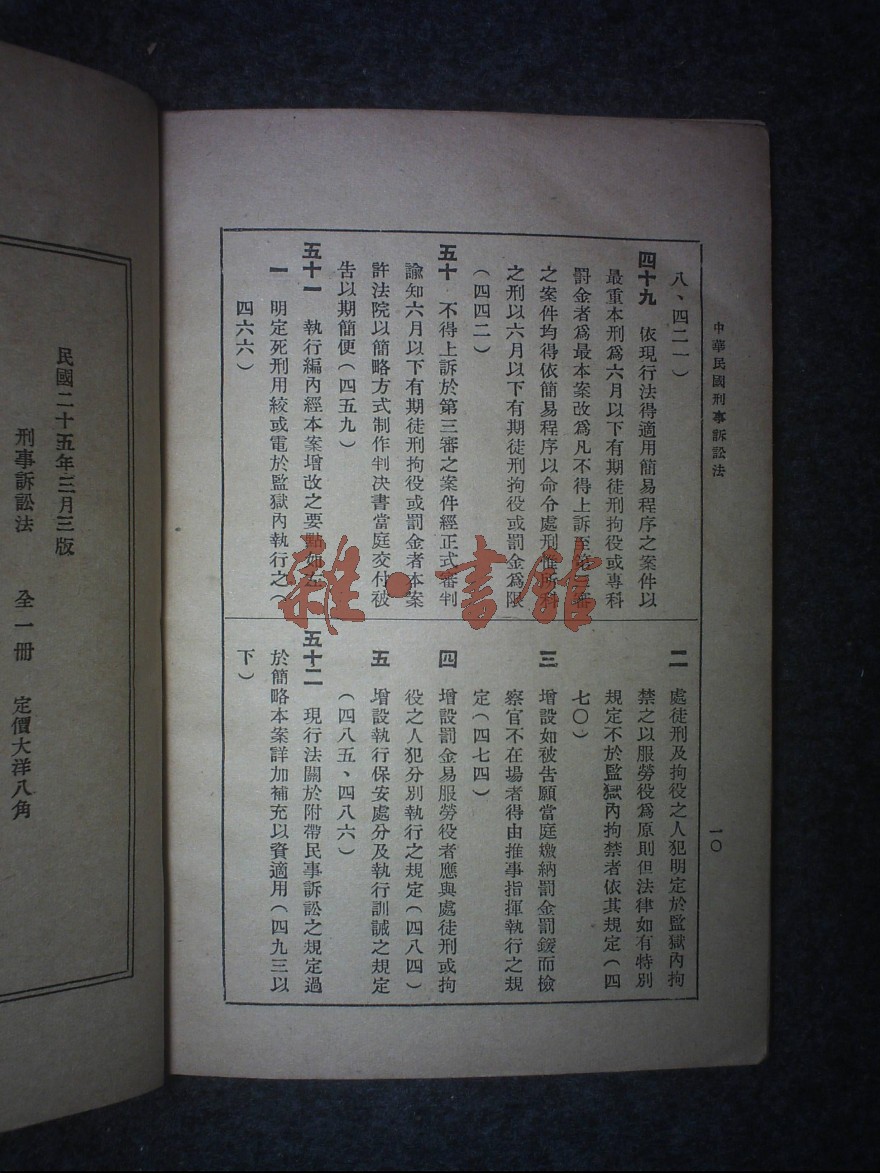 中華民國刑事訴訟法
一〇
八、四二一)
四十九 依現行法得適用簡易程序之案件以
最重本刑爲六月以下有期徒刑拘役或專科
罰金者爲最本案改爲凡不得上訴至第三審
之案件均得依簡易程序以命令處刑惟所科
之刑以六月以下有期徒刑拘役或罰金爲限
(四四二)
五十 不得上訴於第三審之案件經正式審判
諭知六月以下有期徒刑拘役或罰金者本案
許法院以簡略方式制作判決書當庭交付被
告以期簡便(四五九)
五十一 執行編內經本案增改之要點如左
一 明定死刑用絞或電於監獄內執行之(
四六六)
二 處徒刑及拘役之人犯明定於監獄內拘
禁之以服勞役爲原則但法律如有特別
規定不於監獄內拘禁者依其規定(四
七〇)
三 增設如被告願當庭繳納罰金罰鍰而檢
察官不在場者得由推事指揮執行之規
定(四七四)
四 增設罰金易服勞役者應與處徒刑或拘
役之人犯分別執行之規定(四八四)
五 增設執行保安處分及執行訓誡之規定
(四八五、四八六)
五十二 現行法關於附帶民事訴訟之規定過
於簡略本案詳加補充以資適用(四九三以
下)
民國二十五年三月三版
刑事訴訟法 全一冊 定價大洋八角
雜·書館